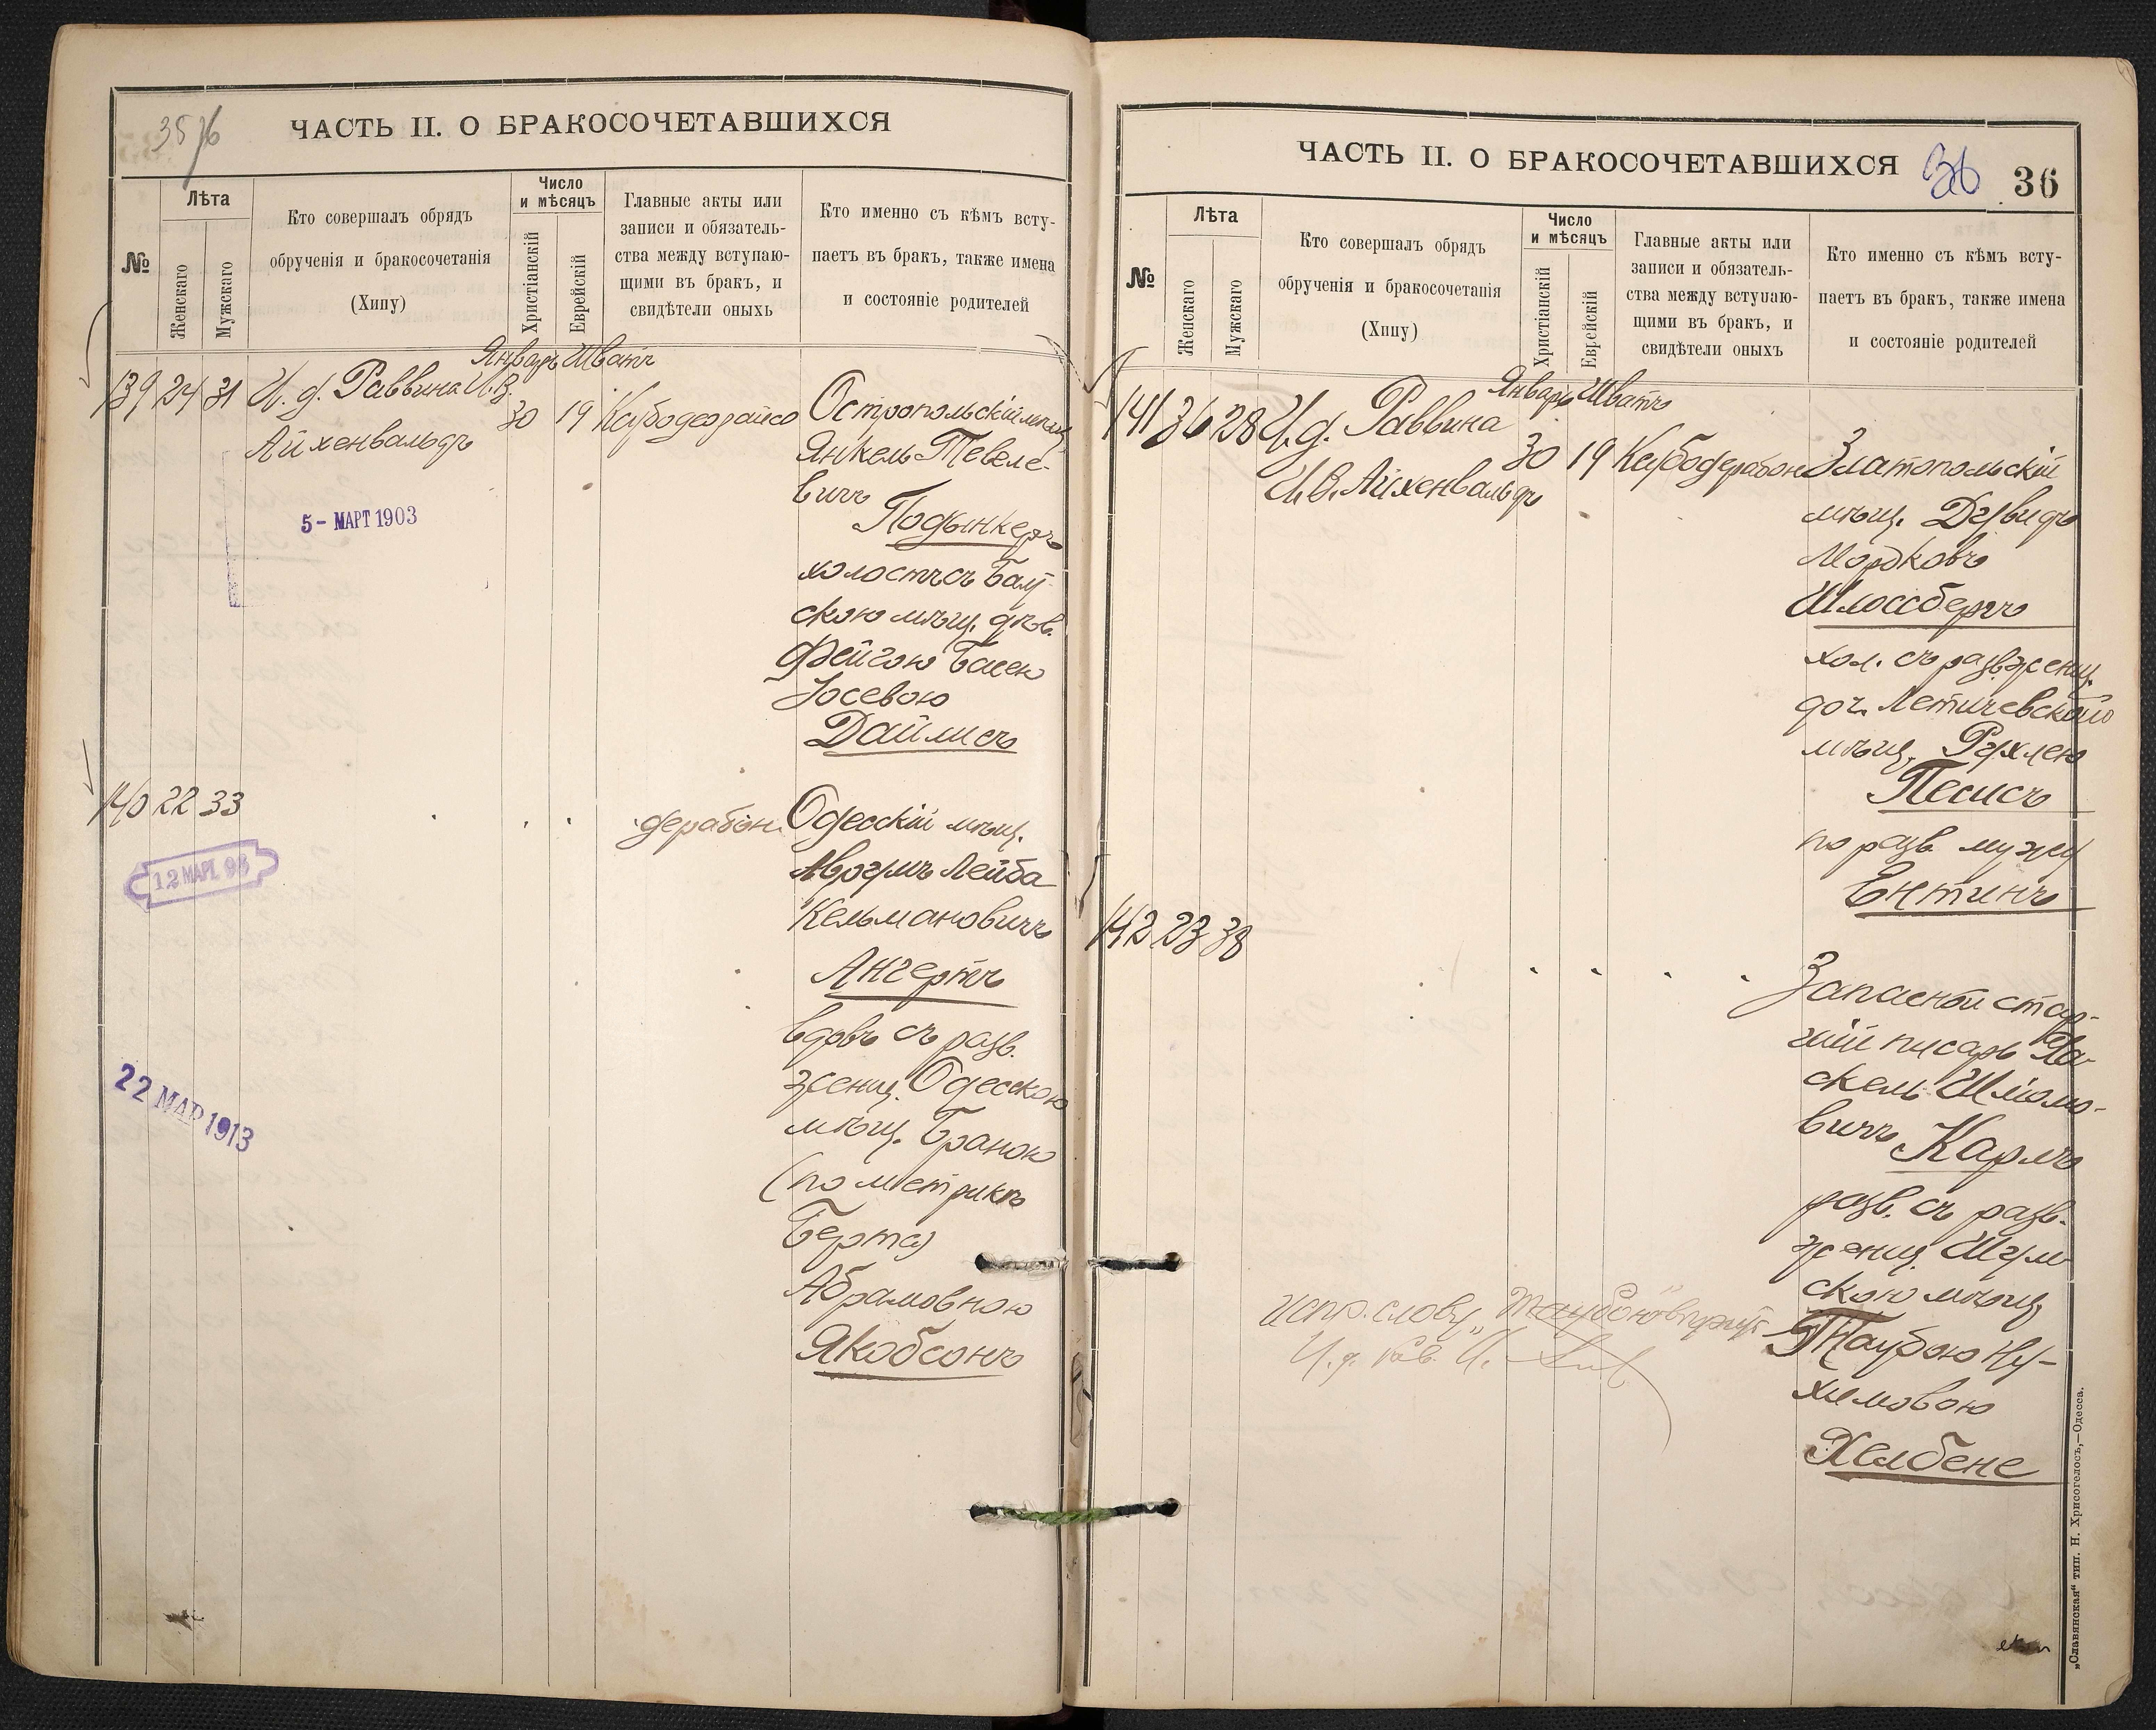 35 36
ЧАСТЬ II. О БРАКОСОЧЕТАВШИХСЯ
№
Лѣта
Женскаго
Мужскаго
Кто совершалъ обрядъ
обрученія и бракосочетанія
(Хипу)
Число
и мѣсяцъ
Христіанскій
Еврейскій
Главные акты или
записи и обязатель-
ства между вступаю-
щими въ бракъ, и
свидѣтели оныхъ
Кто именно съ кѣмъ всту-
паетъ въ бракъ, также имена
и состояніе родителей
Январь Шватъ
139 24 31 И. д. Раввина И. В.
Айхенвальдъ
30 19
Островпольскій мѣщ.
Янкель Тевеле-
вичъ
Подынкеръ
холостъ съ Бау-
скою мѣщ. дѣв.
Фейгою Басею
Іосевою
Даймисъ
5 - МАРТ 1903
140 22 33
дерабон.
Одесскій мѣщ.
Аврумъ Лейба
Кельмановичъ
Ангертъ
вдовъ съ разв.
женщ. Одесскою
мѣщ. Браною
(по метрикѣ
Берта)
Абрамовною
Якобсонъ
12 МАР. 98
22 МАР 1913
ЧАСТЬ II. О БРАКОСОЧЕТАВШИХСЯ
36 36
№
Лѣта
Женскаго
Мужскаго
Кто совершалъ обрядъ
обрученія и бракосочетанія
(Хипу)
Число
и мѣсяцъ
Христіанскій
Еврейскій
Главные акты или
записи и обязатель-
ства между вступаю-
щими въ бракъ, и
свидѣтели оныхъ
Кто именно съ кѣмъ всту-
паетъ въ бракъ, также имена
и состояніе родителей
Январь Шватъ
141 36 28 И. д. Раввина
И. В. Айхенвальдъ
30 19
Златопольскій
мѣщ. Дувидъ
Мордковъ
Шлоссбергъ
хол. съ разв. женщ.
доч. Летичевскаго
мѣщ. Рухлею
Песисъ
по разв. мужу
Ентинъ
142 23 38
Запасной стар-
шій писарь Ха-
скель Шлёмо-
вичъ Карлъ
разв. съ разв.
женщ. Шум-
скою мѣщ.
Таубою Ну-
химовою
Хелбене
испр. слову „Таубою" вѣрить
И. д. рав. И.
„Славянская" тип. Н. Хрисогелосъ,—Одесса.